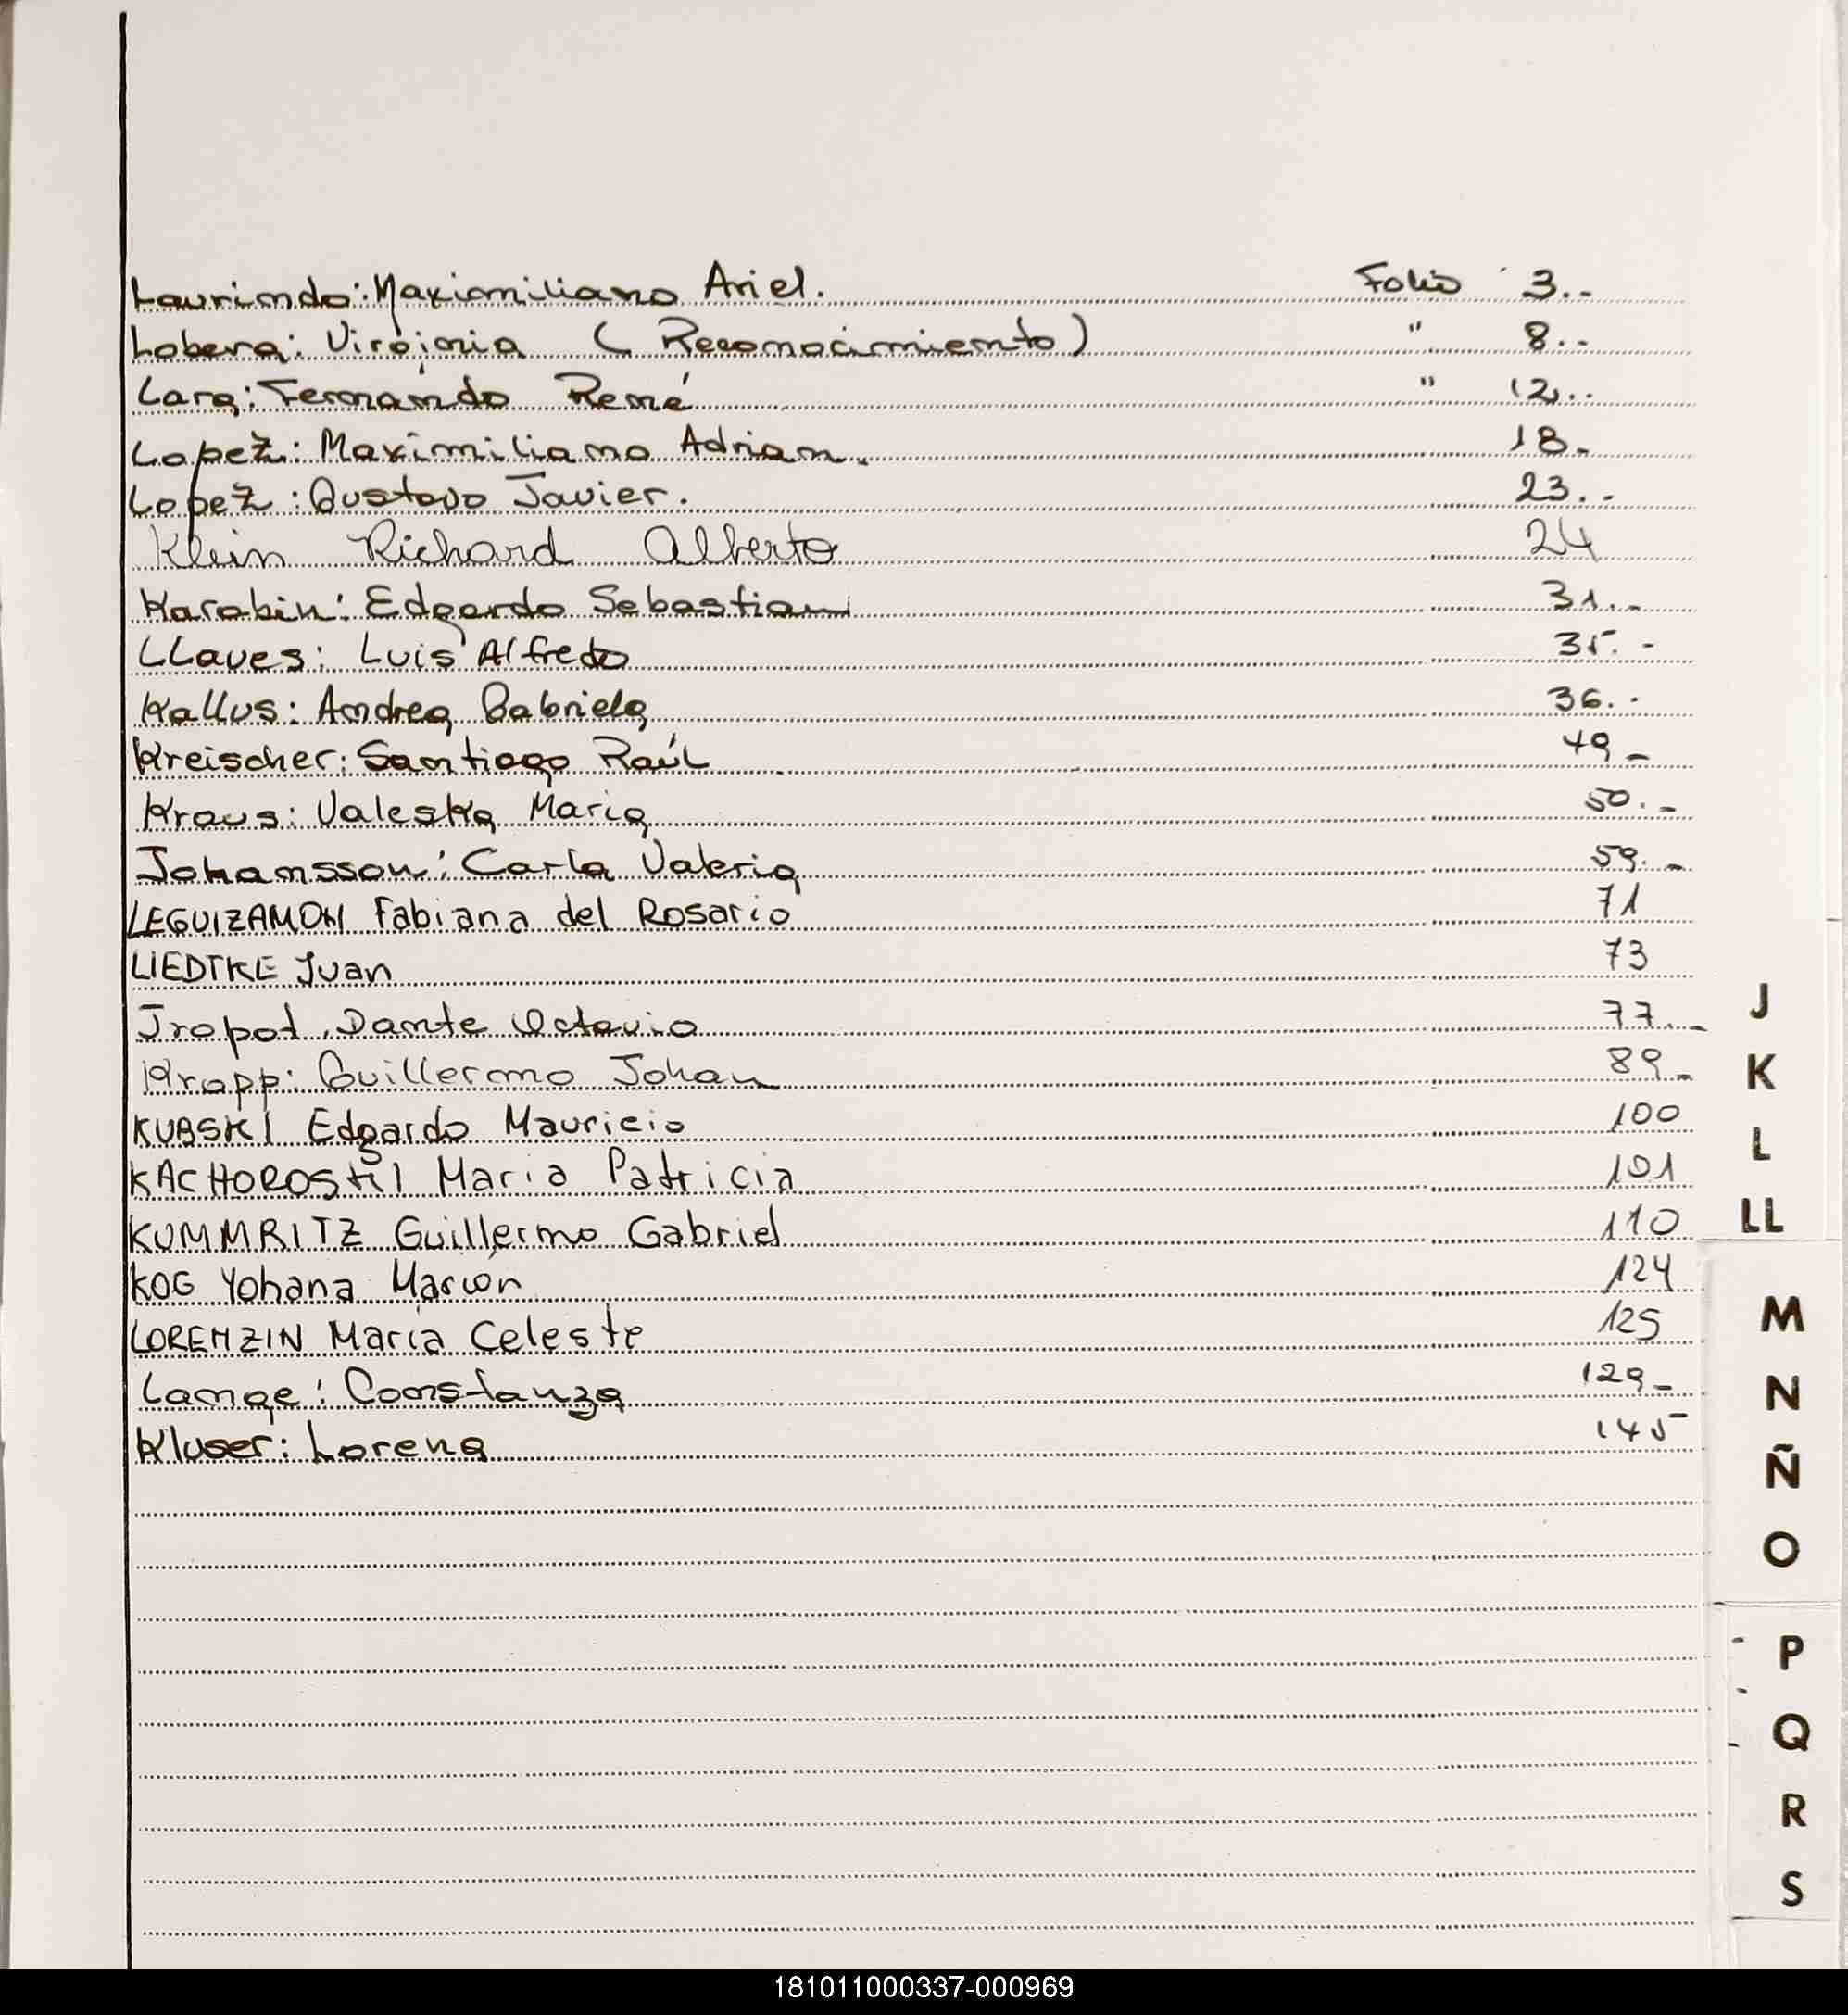 Laurindo: Maximiliano Ariel. Folio 3.-
Lobera: Virginia (Reconocimiento) " 8.-
Lara: Fernando René " 12.-
Lopez: Maximiliano Adrian. 18.-
Lopez: Gustavo Javier. 23.-
Klein Richard Alberto 24
Karabin: Edgardo Sebastian 31.-
LLaves: Luis Alfredo 35.-
Kallus: Andrea Gabriela 36.-
Kreischer: Santiago Raúl 49-
Kraus: Valeska Maria 50.-
Johansson: Carla Valeria 59.-
LEGUIZAMON Fabiana del Rosario 71
LIEDTKE Juan 73
Jropot, Dante Octavio 77.-
Krapp: Guillermo Johan 89-
KUBSKI Edgardo Mauricio 100
KACHOROSKI Maria Patricia 101
KUMMRITZ Guillermo Gabriel 110
KOG Yohana 124
LORENZIN María Celeste 125
Lange: Constanza 129-
Kluser: Lorena 145
J
K
L
LL
M
N
Ñ
O
P
Q
R
S
181011000337-000969